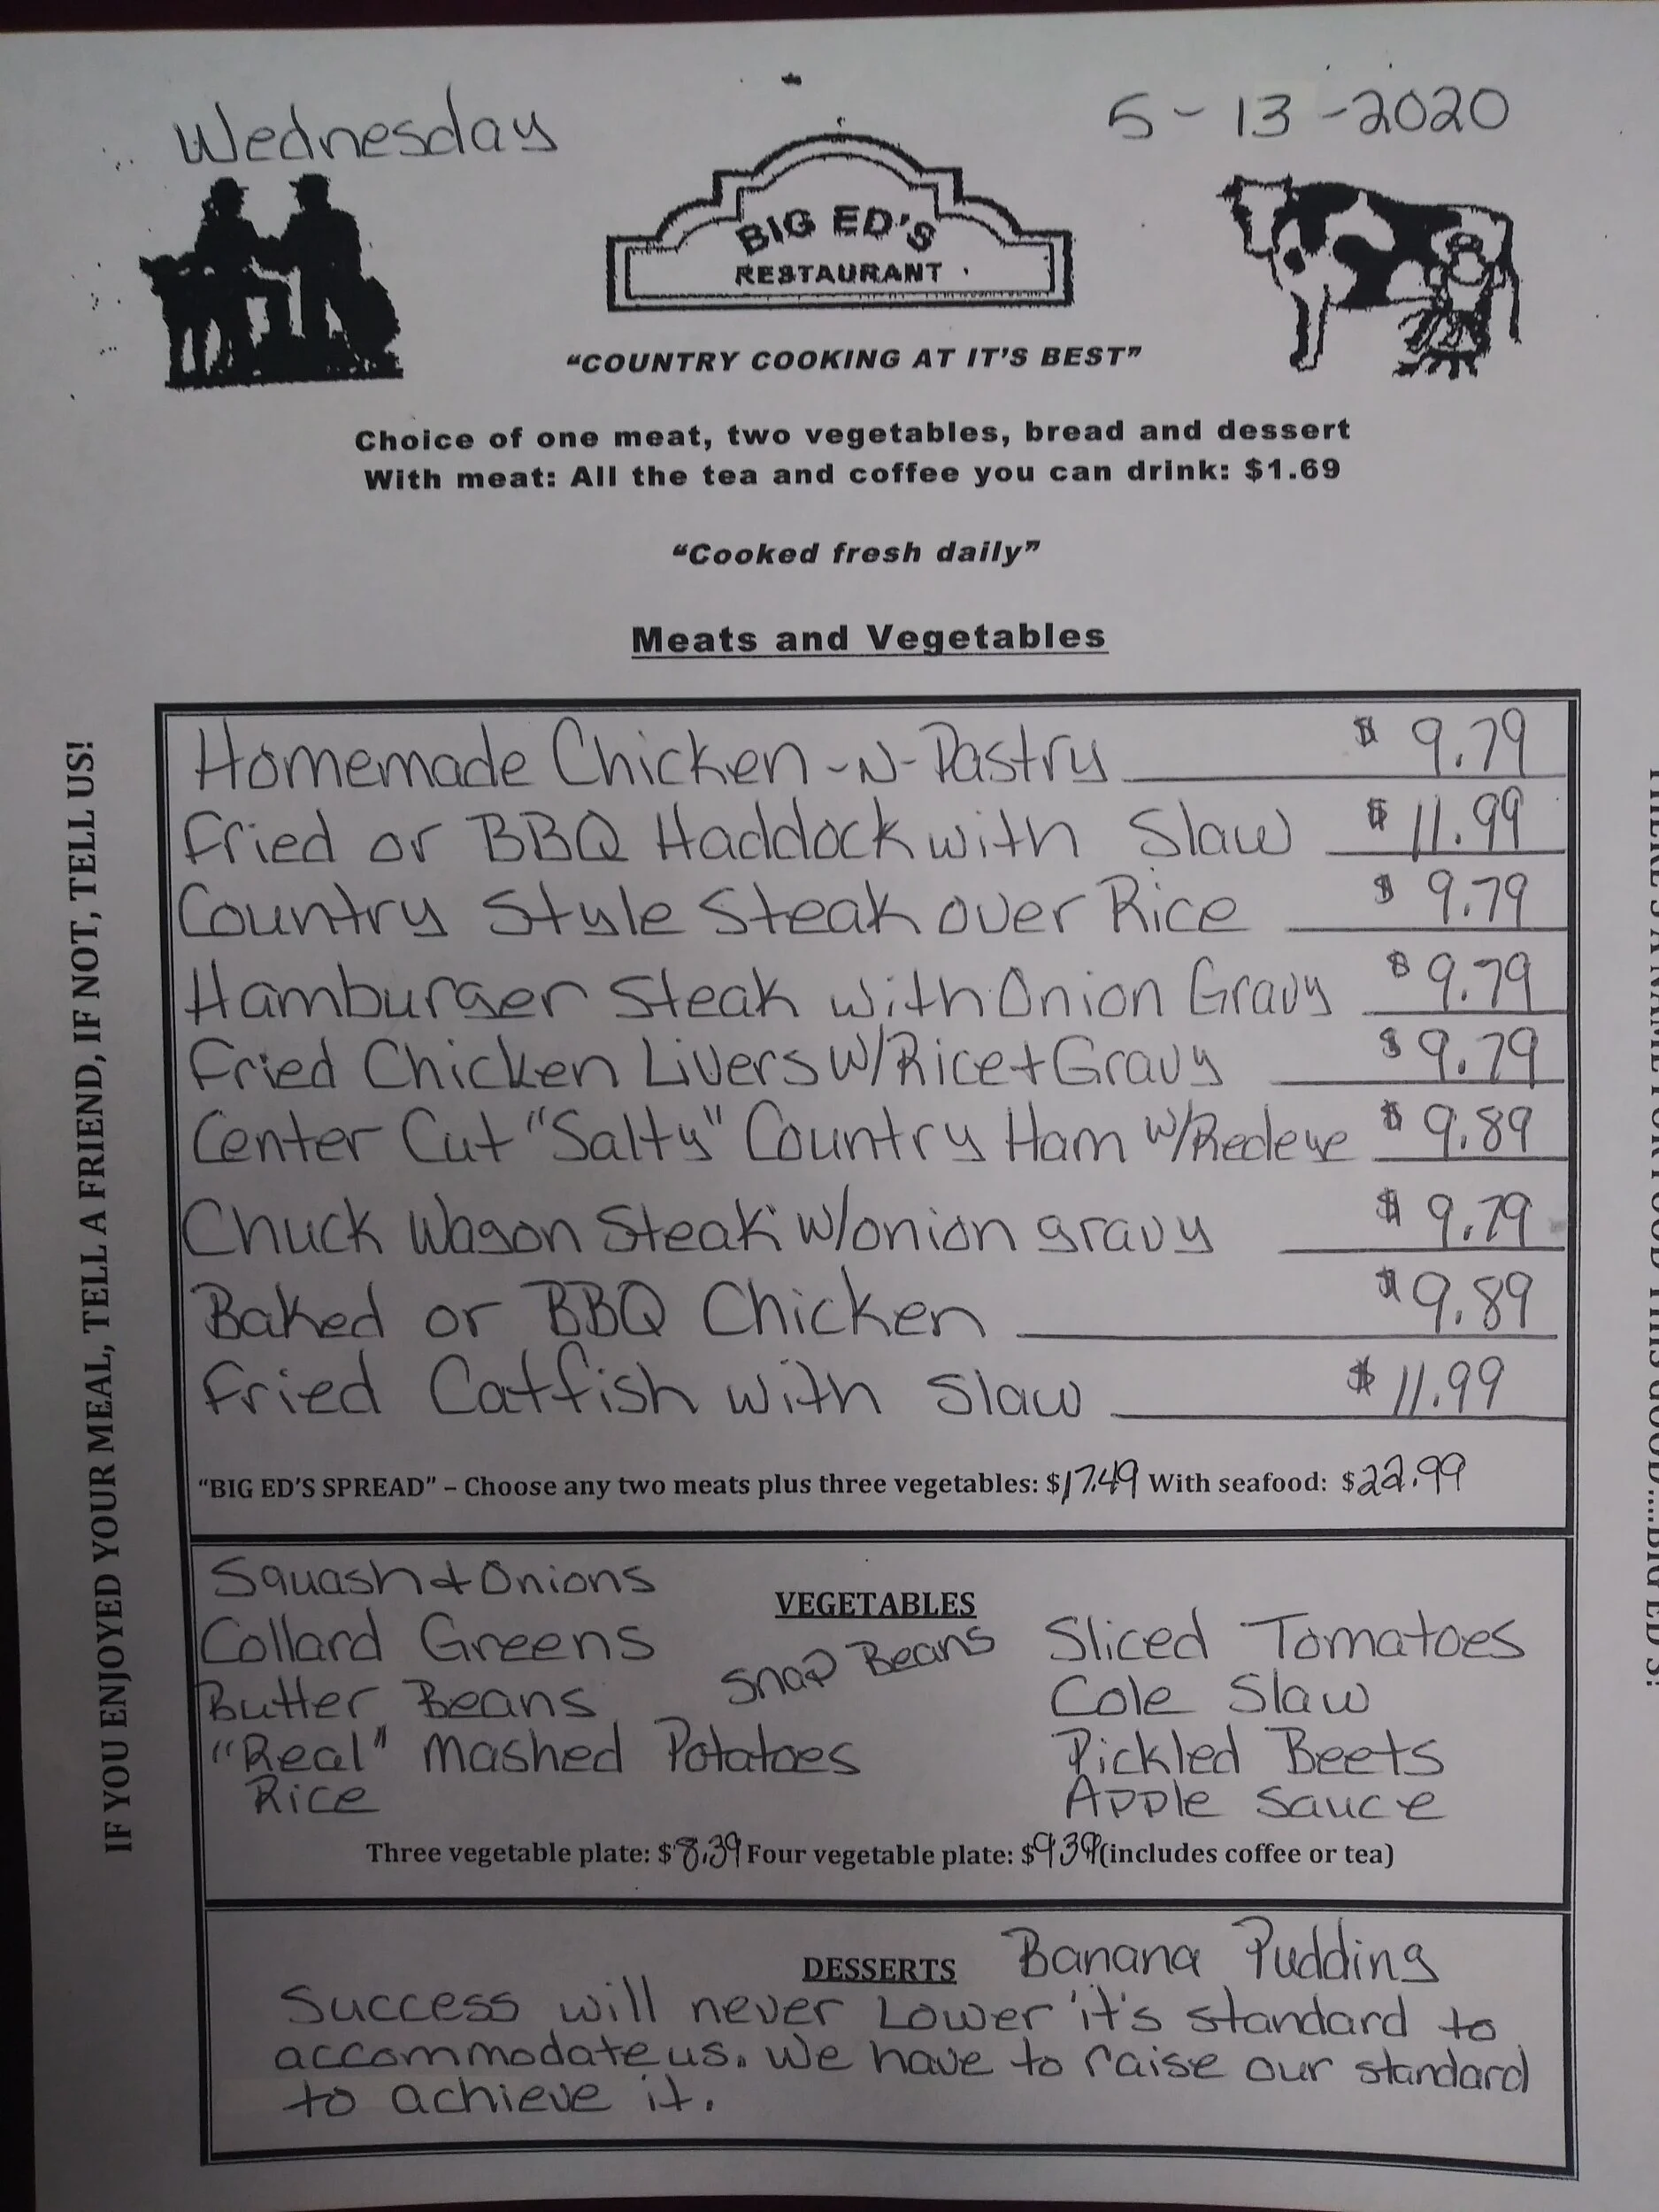 Wednesday
5-13-2020
BIG ED'S
RESTAURANT
"COUNTRY COOKING AT IT'S BEST"
Choice of one meat, two vegetables, bread and dessert
With meat: All the tea and coffee you can drink: $1.69
"Cooked fresh daily"
Meats and Vegetables
Homemade Chicken-N-Pastry $9.79
Fried or BBQ Haddock with Slaw $11.99
Country Style Steak over Rice $9.79
Hamburger Steak with Onion Gravy $9.79
Fried Chicken Livers w/Rice+Gravy $9.79
Center Cut "Salty" Country Ham w/Redeye $9.89
Chuck Wagon Steak w/onion gravy $9.79
Baked or BBQ Chicken $9.89
Fried Catfish with Slaw $11.99
"BIG ED'S SPREAD" – Choose any two meats plus three vegetables: $17.49 With seafood: $22.99
VEGETABLES
Squash & Onions
Collard Greens
Butter Beans
"Real" Mashed Potatoes
Rice
Snap Beans
Sliced Tomatoes
Cole Slaw
Pickled Beets
Apple Sauce
Three vegetable plate: $8.39 Four vegetable plate: $9.39 (includes coffee or tea)
DESSERTS Banana Pudding
Success will never Lower it's standard to
accommodate us. We have to raise our standard
to achieve it.
IF YOU ENJOYED YOUR MEAL, TELL A FRIEND, IF NOT, TELL US!